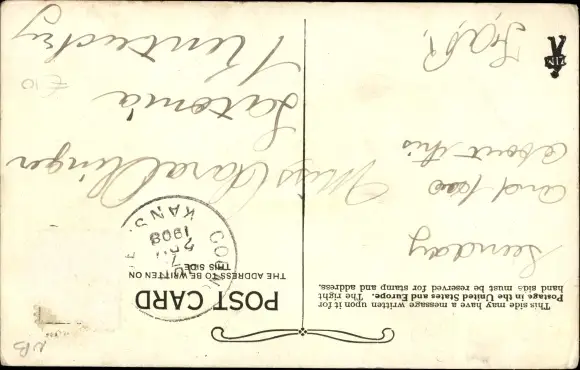 This side may have a message written upon it for
Postage in the United States and Europe. The right
hand side must be reserved for stamp and address.
Sunday
and how
about this
POST CARD
THE ADDRESS TO BE WRITTEN ON
THIS SIDE
KANS
1908
Miss Clara Olinger
Latonia
Kentucky